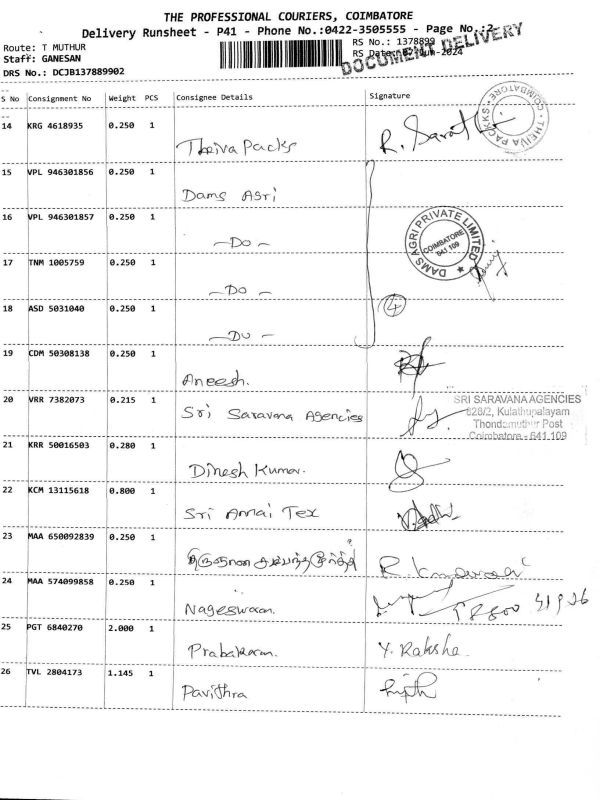 THE PROFESSIONAL COURIERS, COIMBATORE
Delivery Runsheet - P41 - Phone No.:0422-3505555 - Page No.:2
DOCUMENT DELIVERY
Route: T MUTHUR
RS No.: 1378899
Staff: GANESAN
RS Date: Jun-2024
DRS No.: DCJB137889902
S No Consignment No Weight PCS Consignee Details Signature
14 KRG 4618935 0.250 1 Theiva Packs R. Sarath
THEIVA PACKKS COIMBATORE
15 VPL 946301856 0.250 1 Dams Agri
16 VPL 946301857 0.250 1 -Do-
DAMS AGRI PRIVATE LIMITED
COIMBATORE
641 109
17 TNM 1005759 0.250 1 -Do-
18 ASD 5031040 0.250 1 -Do- 4
19 CDM 50308138 0.250 1 Aneesh.
20 VRR 7382073 0.215 1 Sri Saravana Agencies
SRI SARAVANA AGENCIES
628/2, Kulathupalayam
Thondamuthur Post
Coimbatore - 641 109
21 KRR 50016503 0.280 1 Dinesh Kumar.
22 KCM 13115618 0.800 1 Sri Annai Tex
23 MAA 650092839 0.250 1
24 MAA 574099858 0.250 1 Nageswaran.
25 PGT 6840270 2.000 1 Prabakaran. Y. Raksha
26 TVL 2804173 1.145 1 Pavithra